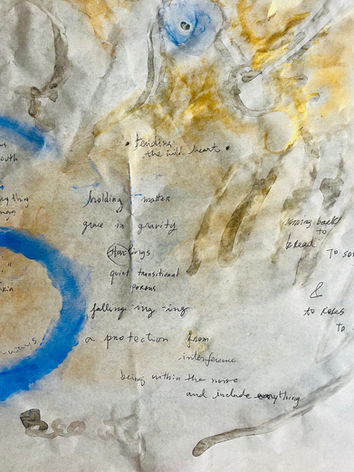 • tending
the wild heart •
holding matter
grace in gravity
starlings
quiet transitional
porous
falling-ing-ing
a protection from
interference
being within the noise
and include everything
coming back
to
bread
to so
&
to roses
to
outh
ng thing
"
kin